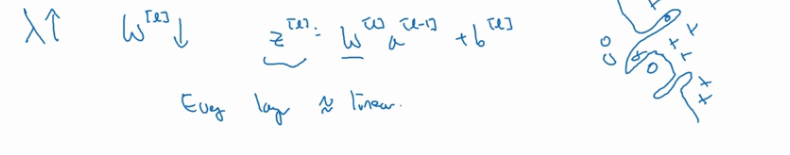 λ↑ W^[l]↓ z^[l] = W^[l] a^[l-1] + b^[l]
Every layer ≈ linear.